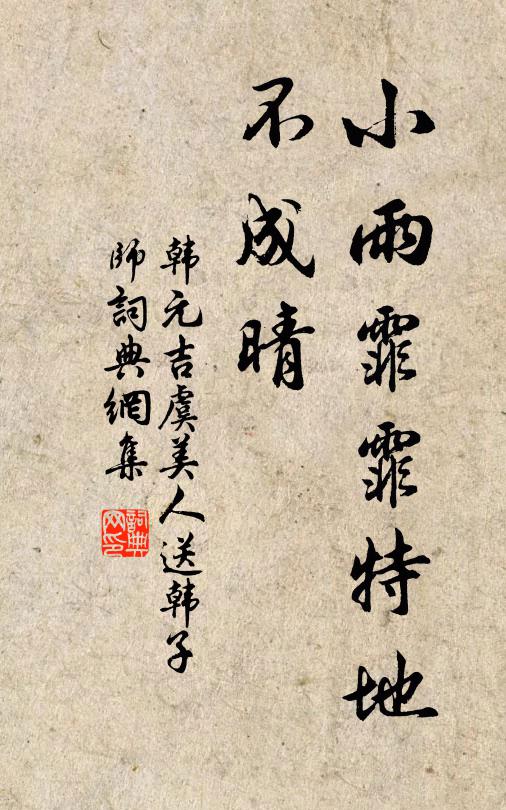 小雨霏霏特地
不成晴
韩元吉虞美人送韩子
师词典網集
詞典網印